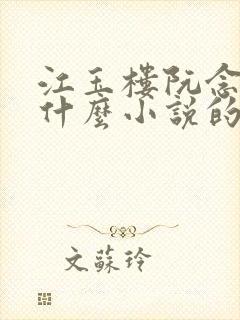 江玉樓阮念
什麼小說的
文蘇玲